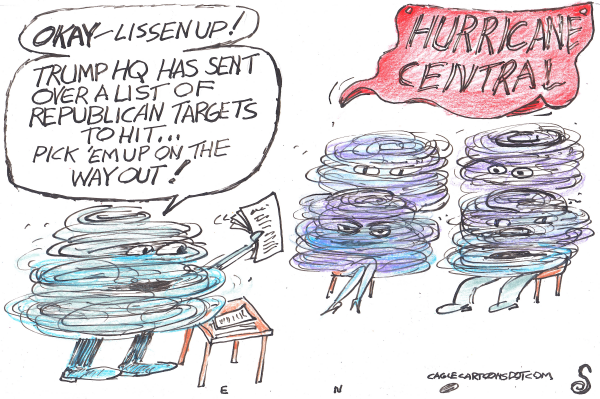 OKAY-LISSEN UP!
TRUMP HQ HAS SENT
OVER A LIST OF
REPUBLICAN TARGETS
TO HIT...
PICK 'EM UP ON THE
WAY OUT!
HURRICANE
CENTRAL
E N
CAGLECARTOONSDOTCOM